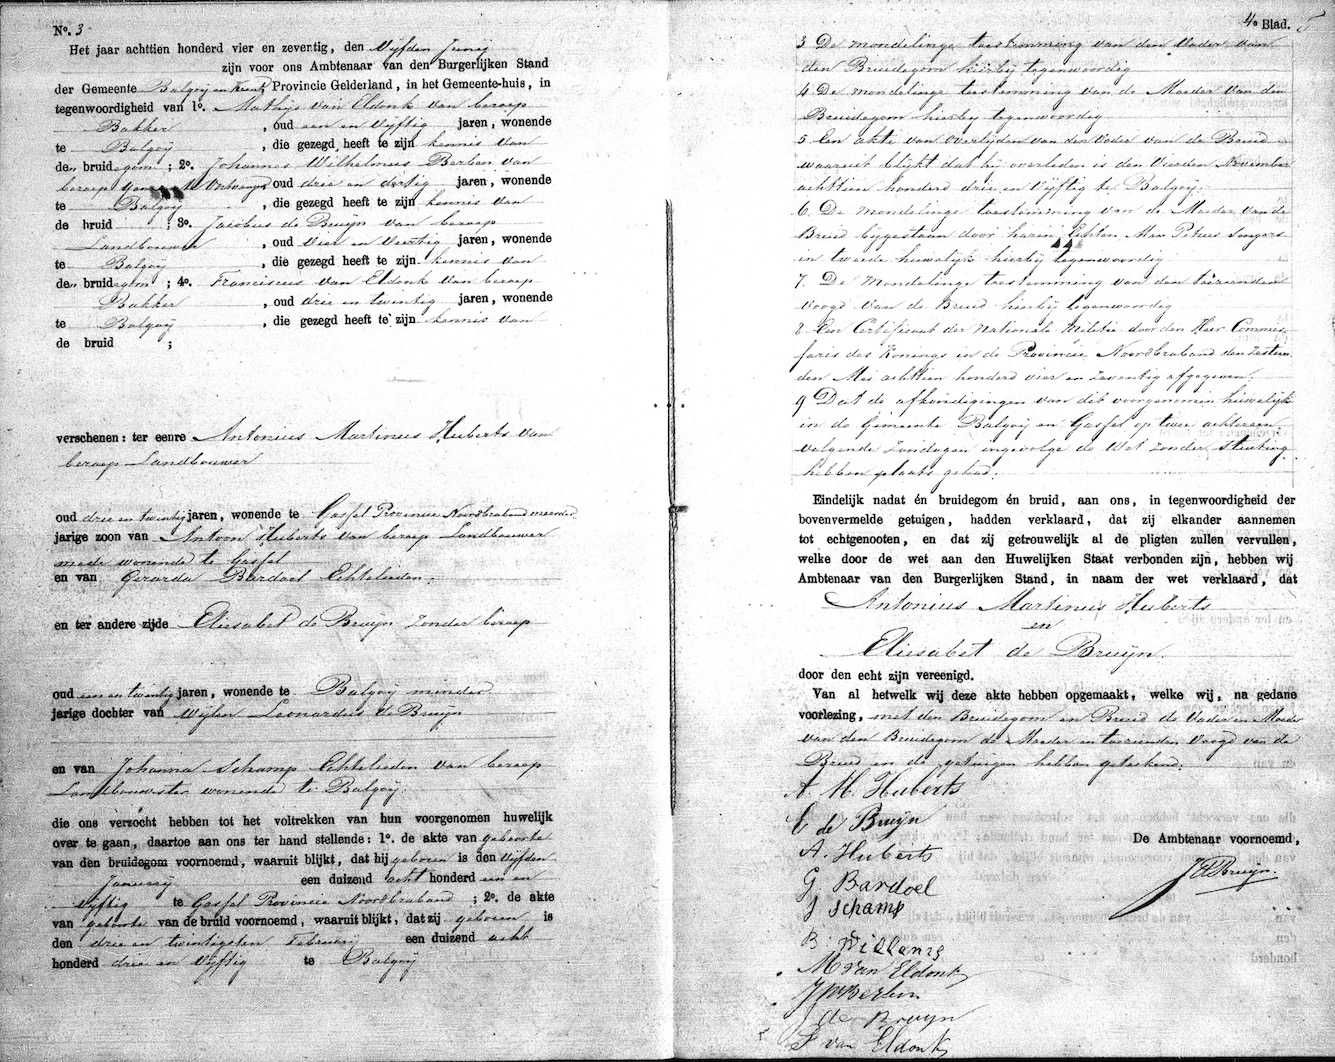 No. 3
Het jaar achttien honderd vier en zeventig, den Vijfden Junij
zijn voor ons Ambtenaar van den Burgerlijken Stand
der Gemeente Balgoij en Keent, Provincie Gelderland, in het Gemeente-huis, in
tegenwoordigheid van 1o. Mathijs van Eldonk van beroep
Bakker, oud een en Vijftig jaren, wonende
te Balgoij, die gezegd heeft te zijn kennis van
den bruidegom; 2o. Johannes Wilhelmus Berben van
beroep Ontvanger oud drie en dertig jaren, wonende
te Balgoij, die gezegd heeft te zijn kennis van
de bruid; 3o. Jacobus de Bruijn van beroep
Landbouwer, oud Vier en Veertig jaren, wonende
te Balgoij, die gezegd heeft te zijn kennis van
den bruidegom; 4o. Franciscus van Eldonk van beroep
Bakker, oud drie en twintig jaren, wonende
te Balgoij, die gezegd heeft te zijn kennis van
de bruid;
verschenen: ter eenre Antonius Martinus Huberts van
beroep Landbouwer
oud drie en twintig jaren, wonende te Gassel Provincie Noordbraband meerder
jarige zoon van Antoon Huberts van beroep Landbouwer
mede wonende te Gassel
en van Gerarda Bardoel Echtelieden;
en ter andere zijde Eliesabet de Bruijn zonder beroep
oud een en twintig jaren, wonende te Balgoij minder
jarige dochter van Wijlen Leonardus de Bruijn
en van Johanna Schamp Echtelieden van beroep
Landbouwster wonende te Balgoij.
die ons verzocht hebben tot het voltrekken van hun voorgenomen huwelijk
over te gaan, daartoe aan ons ter hand stellende: 1o. de akte van geboorte
van den bruidegom voornoemd, waaruit blijkt, dat hij geboren is den Vijfden
Januarij een duizend acht honderd een en
Vijftig te Gassel Provincie Noordbraband; 2o. de akte
van geboorte van de bruid voornoemd, waaruit blijkt, dat zij geboren is
den drie en twintigsten Februarij een duizend acht
honderd drie en Vijftig te Balgoij
4e Blad. 5
3 De mondelinge toestemming van den Vader van
den Bruidegom hierbij tegenwoordig
4 De mondelinge toestemming van de Moeder van den
Bruidegom hierbij tegenwoordig
5. Een akte van Overlijden van den Vader van de Bruid
waaruit blijkt dat hij overleden is den Vierden November
achttien honderd drie en Vijftig te Balgoij.
6. De mondelinge toestemming van de Moeder van de
Bruid bijgestaan door haren Echten Man Petrus Jongers
in tweede huwelijk hierbij tegenwoordig
7. De Mondelinge toestemming van den toezienden
voogd van de Bruid hierbij tegenwoordig
8 Een Certificaat der Nationale Militie door den Heer Commis
saris des Konings in de Provincie Noordbraband den zestien
den Mei achttien honderd vier en zeventig afgegeven.
9 Dat de afkondigingen van dit voorgenomen huwelijk
in de Gemeente Balgoij en Gassel op twee achtereen
volgende Zondagen ingevolge de Wet zonder stuiting
hebben plaats gehad.
Eindelijk nadat én bruidegom én bruid, aan ons, in tegenwoordigheid der
bovenvermelde getuigen, hadden verklaard, dat zij elkander aannemen
tot echtgenooten, en dat zij getrouwelijk al de pligten zullen vervullen,
welke door de wet aan den Huwelijken Staat verbonden zijn, hebben wij
Ambtenaar van den Burgerlijken Stand, in naam der wet verklaard, dat
Antonius Martinus Huberts
en
Eliesabet de Bruijn.
door den echt zijn vereenigd.
Van al hetwelk wij deze akte hebben opgemaakt, welke wij, na gedane
voorlezing, met den Bruidegom en Bruid de Vader en Moeder
van den Bruidegom de Moeder en toezienden Voogd van de
Bruid en de getuigen hebben geteekend.
A. M. Huberts
E de Bruijn
A. Huberts
G. Bardoel
J Schamp
B. Willems
M van Eldonk
J W Berben
J de Bruijn
F van Eldonk
De Ambtenaar voornoemd,
J d Bruijn.